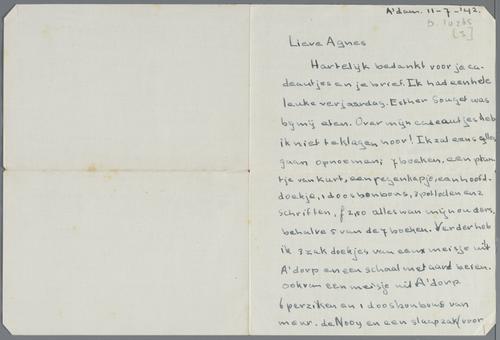 A'dam. 11-7-'42.
Lieve Agnes
Hartelijk bedankt voor je ca-
deautjes en je brief. Ik had een hele
leuke verjaardag. Esther was
bij mij eten. Over mijn cadeautjes heb
ik niet te klagen hoor! Ik zal eens alles
gaan opnoemen; 7 boeken, een
tje van Kurt, een regenkapje, een hoofd-
doekje, 1 doos bonbons, 2 potloden en 2
schriften, f 2,50 alles van mijn ouders,
behalve 5 van de 7 boeken. Verder heb
ik 3 zakdoekjes van een meisje uit
A'dorp en een schaal met aardberen.
ook van een meisje uit A'dorp
6 perziken en 1 doos bonbons van
meur. de Nooy en een slaapzak (voor